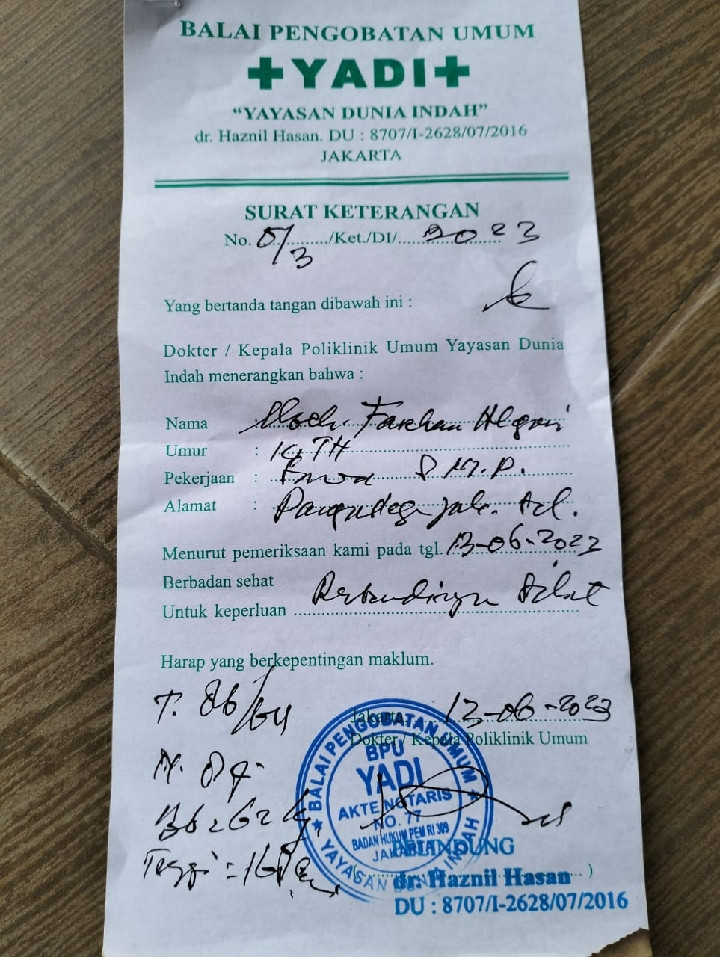 BALAI PENGOBATAN UMUM
+YADI+
"YAYASAN DUNIA INDAH"
dr. Haznil Hasan. DU : 8707/I-2628/07/2016
JAKARTA
SURAT KETERANGAN
No. /Ket./DI/ 2023
Yang bertanda tangan dibawah ini :
Dokter / Kepala Poliklinik Umum Yayasan Dunia
Indah menerangkan bahwa :
Nama Moch. Farchan
Umur : TH
Pekerjaan : S M.P.
Alamat :
Menurut pemeriksaan kami pada tgl. 13-06-2023
Berbadan sehat
Untuk keperluan Silat
Harap yang berkepentingan maklum.
Jakarta 13-06-2023
Dokter / Kepala Poliklinik Umum
T.
N.
BB
Tinggi =
BALAI PENGOBATAN UMUM
BPU
YADI
AKTE NOTARIS
NO. 77
BADAN HUKUM PEM RI 309
JAKARTA
YAYASAN DUNIA INDAH
PELINDUNG
dr. Haznil Hasan
DU : 8707/I-2628/07/2016